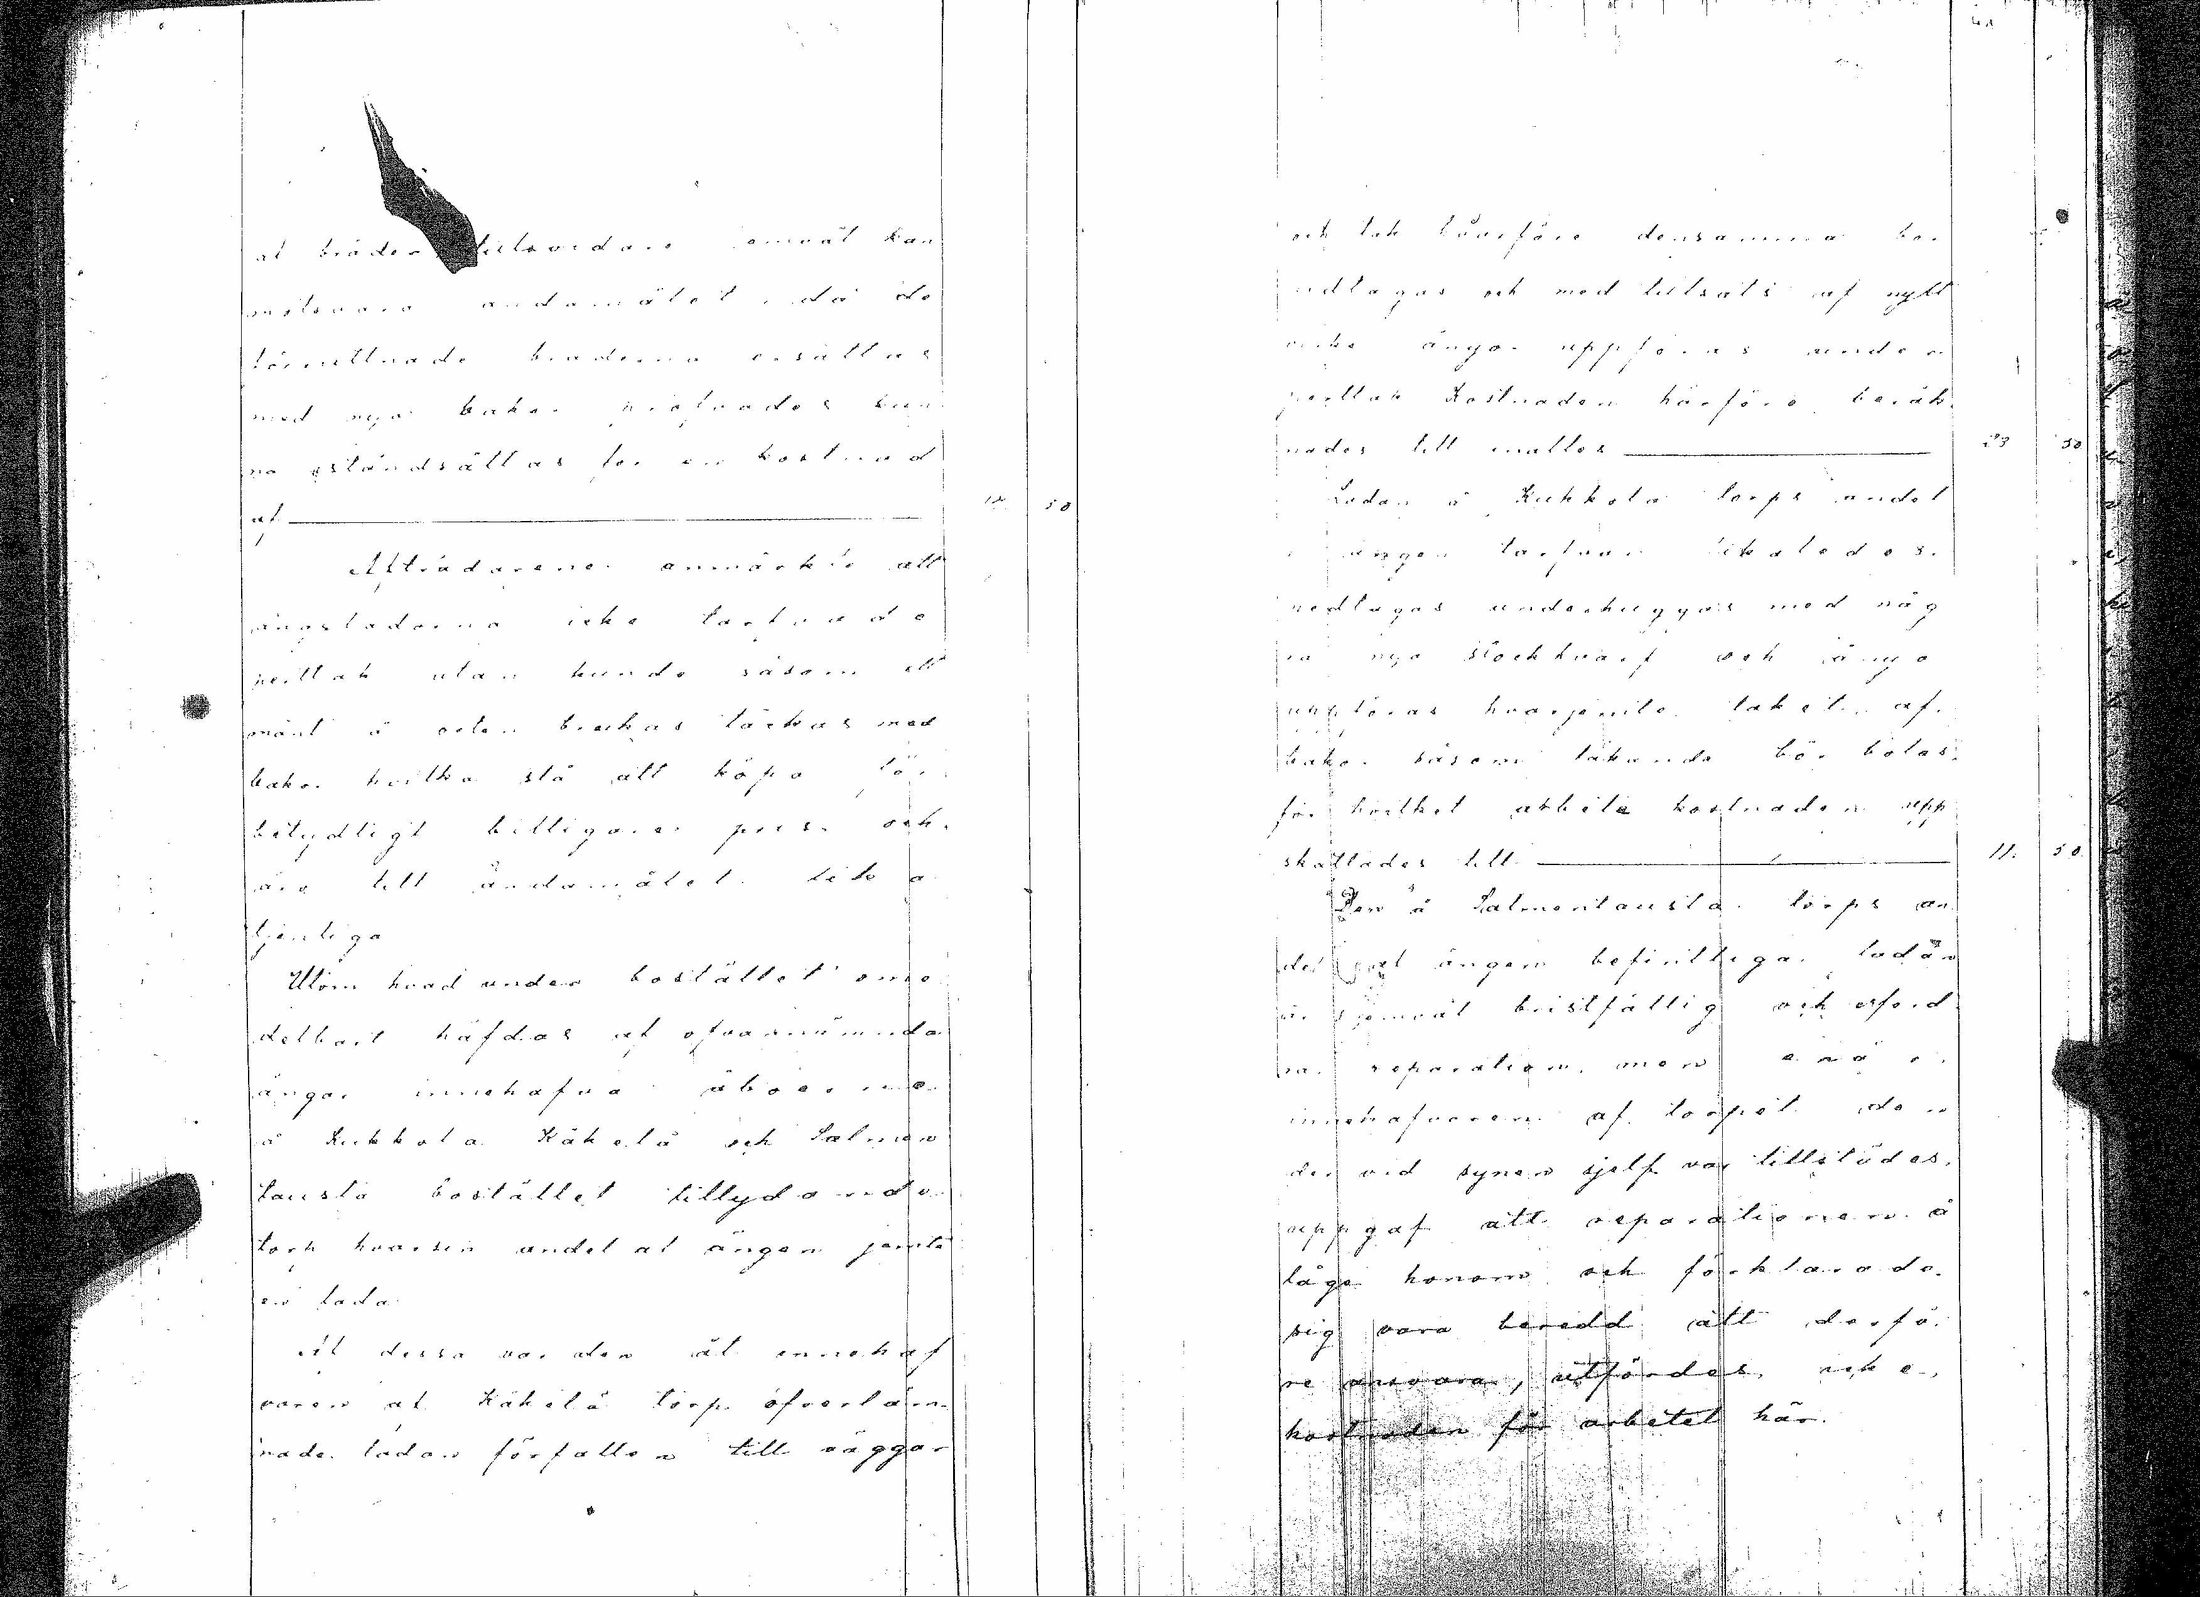 af bräder tillsvidare jemväl kan
motsvara ändamålet, då de
förruttnade bräderna ersättas
med nya bakar pröfvades kun
na iståndsättas för en kostnad
af 12 50
Afträdarene anmärkte att
ängsladorna icke tarfvade
perttak utan kunde såsom
å orten brukas täckas med
bakar hvilka stå att köpa för
betydligt billigare pris och
äro till ändamålet lika
tjenliga
Utom hvad under bostället ome
delbart häfdas af ofvannämnda
ängar innehafva åboerne
å Kukkola Käkelä och Salmen
tausta bostället tillydande
torp hvarsin andel af ängen jemte
en lada
Af dessa var den åt innehaf
varen af Käkelä torp öfverläm
nade ladan förfallen till väggar
och tak hvarföre densamma bör
nedtagas och med tillsats af nytt
virke ånyo uppföras under
perttak Kostnaden härföre beräk
nades till inalles 23 50
Ladan å Kukkola torps andel
i ängen tarfvar likaledes
nedtagas underhuggas med någ
ra nya stockhvarf och ånyo
uppföras hvarjemte taket af
bakar såsom läkande bör botas
för hvilket arbete kostnaden upp
skattades till 11. 50
Den å Salmentausta torps an
del i ängen befintliga ladan
är jemväl bristfällig och erford
rar reparation, men enär
innehafvaren af torpet den
der vid synen sjelf var tillstädes,
uppgaf att reparationen å
låge honom och förklarade
sig vara beredd att derfö
re ansvara, utfördes icke
kostnaden för arbetet här.